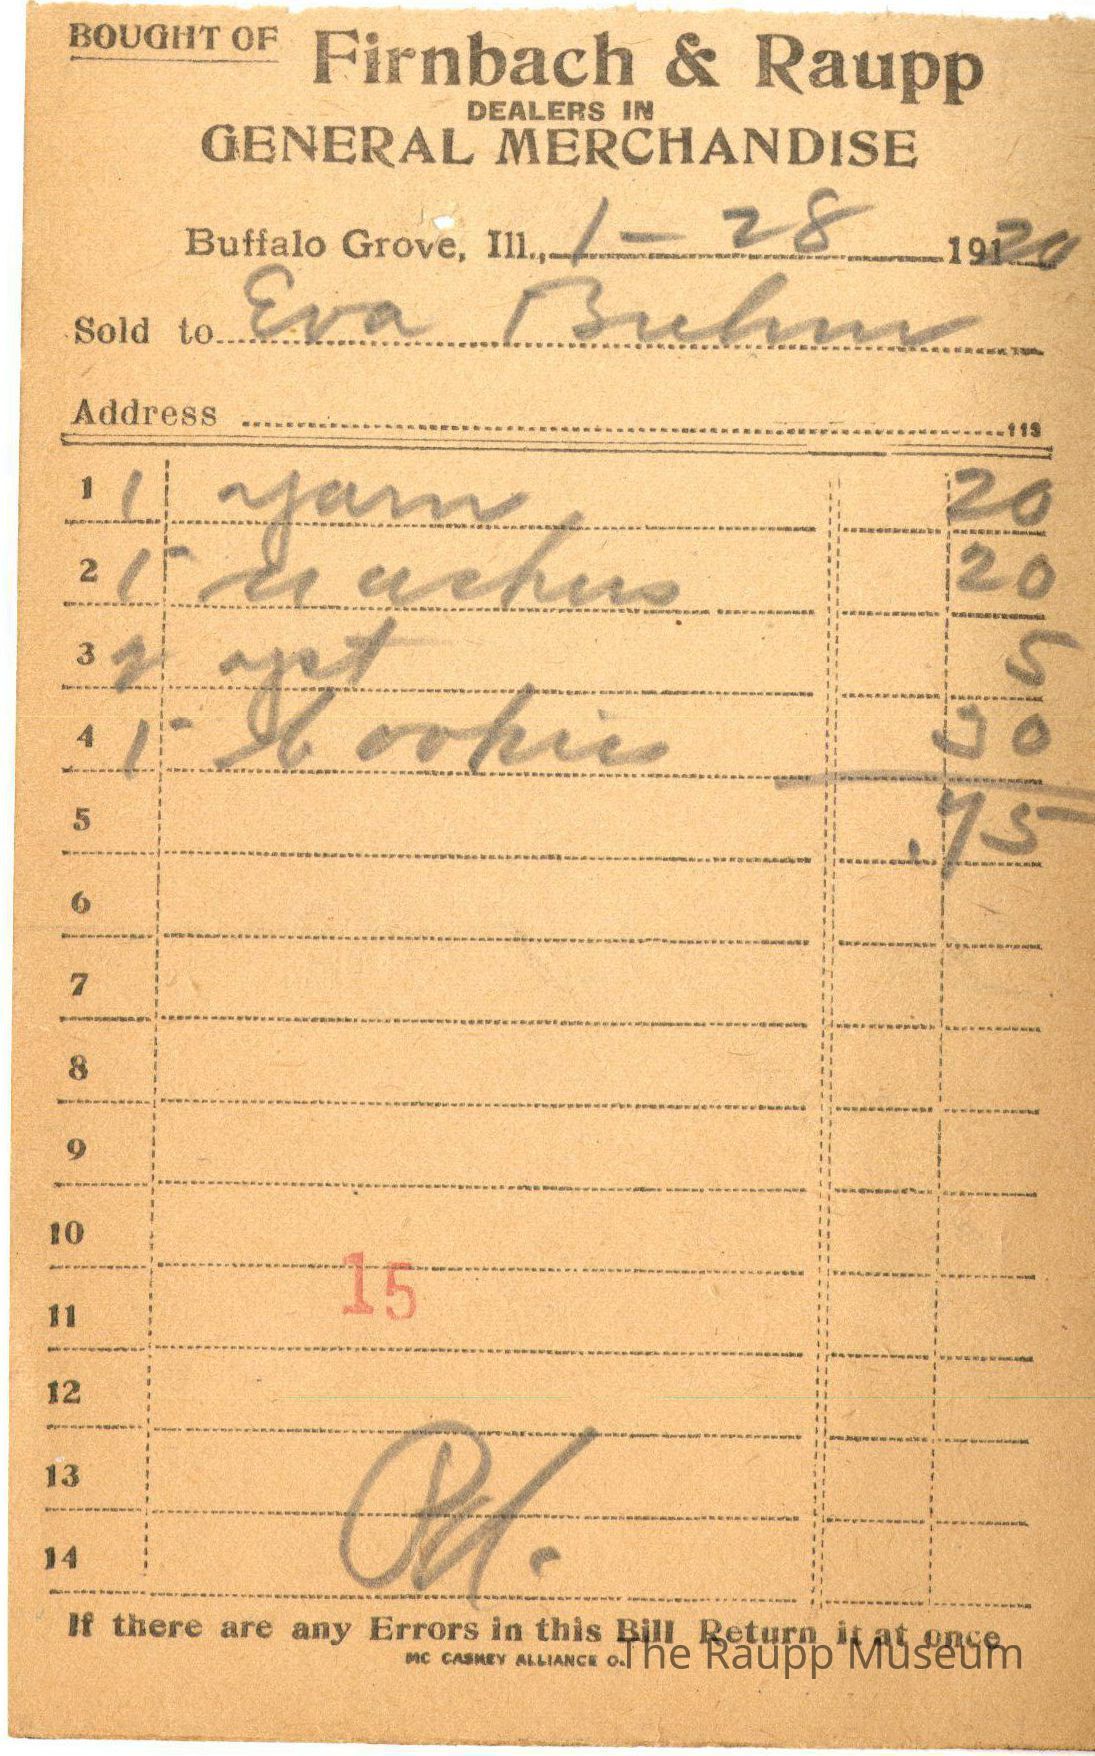 BOUGHT OF Firnbach & Raupp
DEALERS IN
GENERAL MERCHANDISE
Buffalo Grove, Ill., 1-28 19120
Sold to Eva
Address
113
1 1 yarn 20
2 1 20
3 2 5
4 1 cookies 30
5 .75
6
7
8
9
10
15
11
12
13
Pd.
14
If there are any Errors in this Bill Return it at once
MC CASKEY ALLIANCE O.
The Raupp Museum